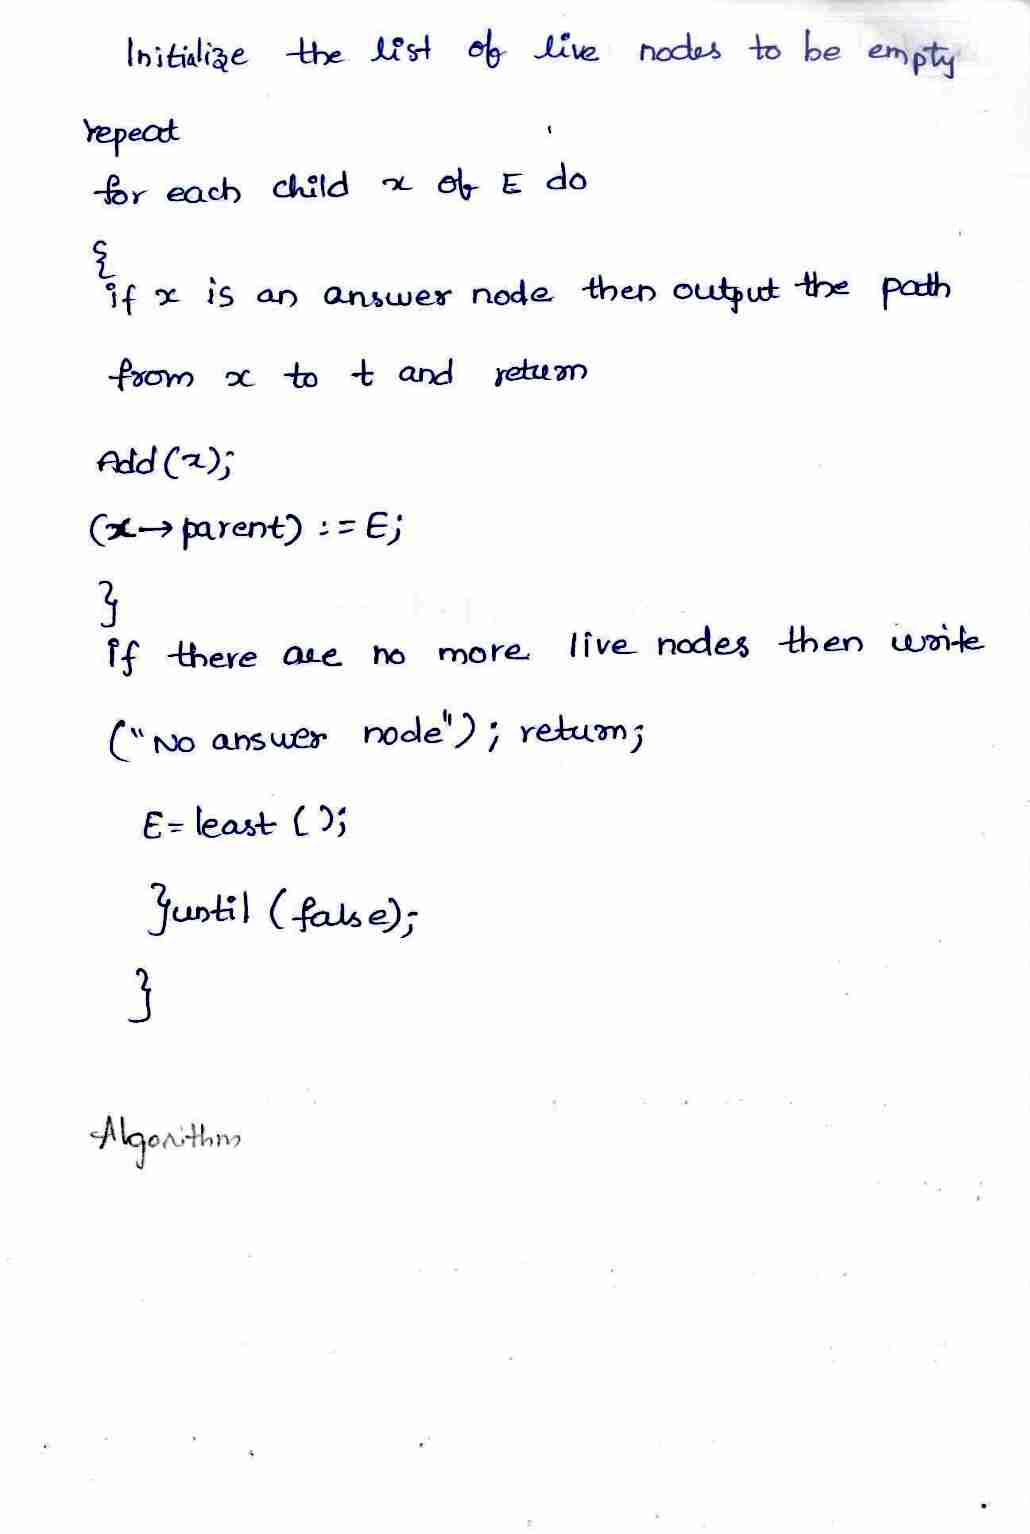 Initialize the list of live nodes to be empty
repeat
for each child x of E do
{
if x is an answer node then output the path
from x to t and return
Add (x);
(x→parent) := E;
}
if there are no more live nodes then write
("No answer node"); return;
E = least ();
}until (false);
}
Algorithm